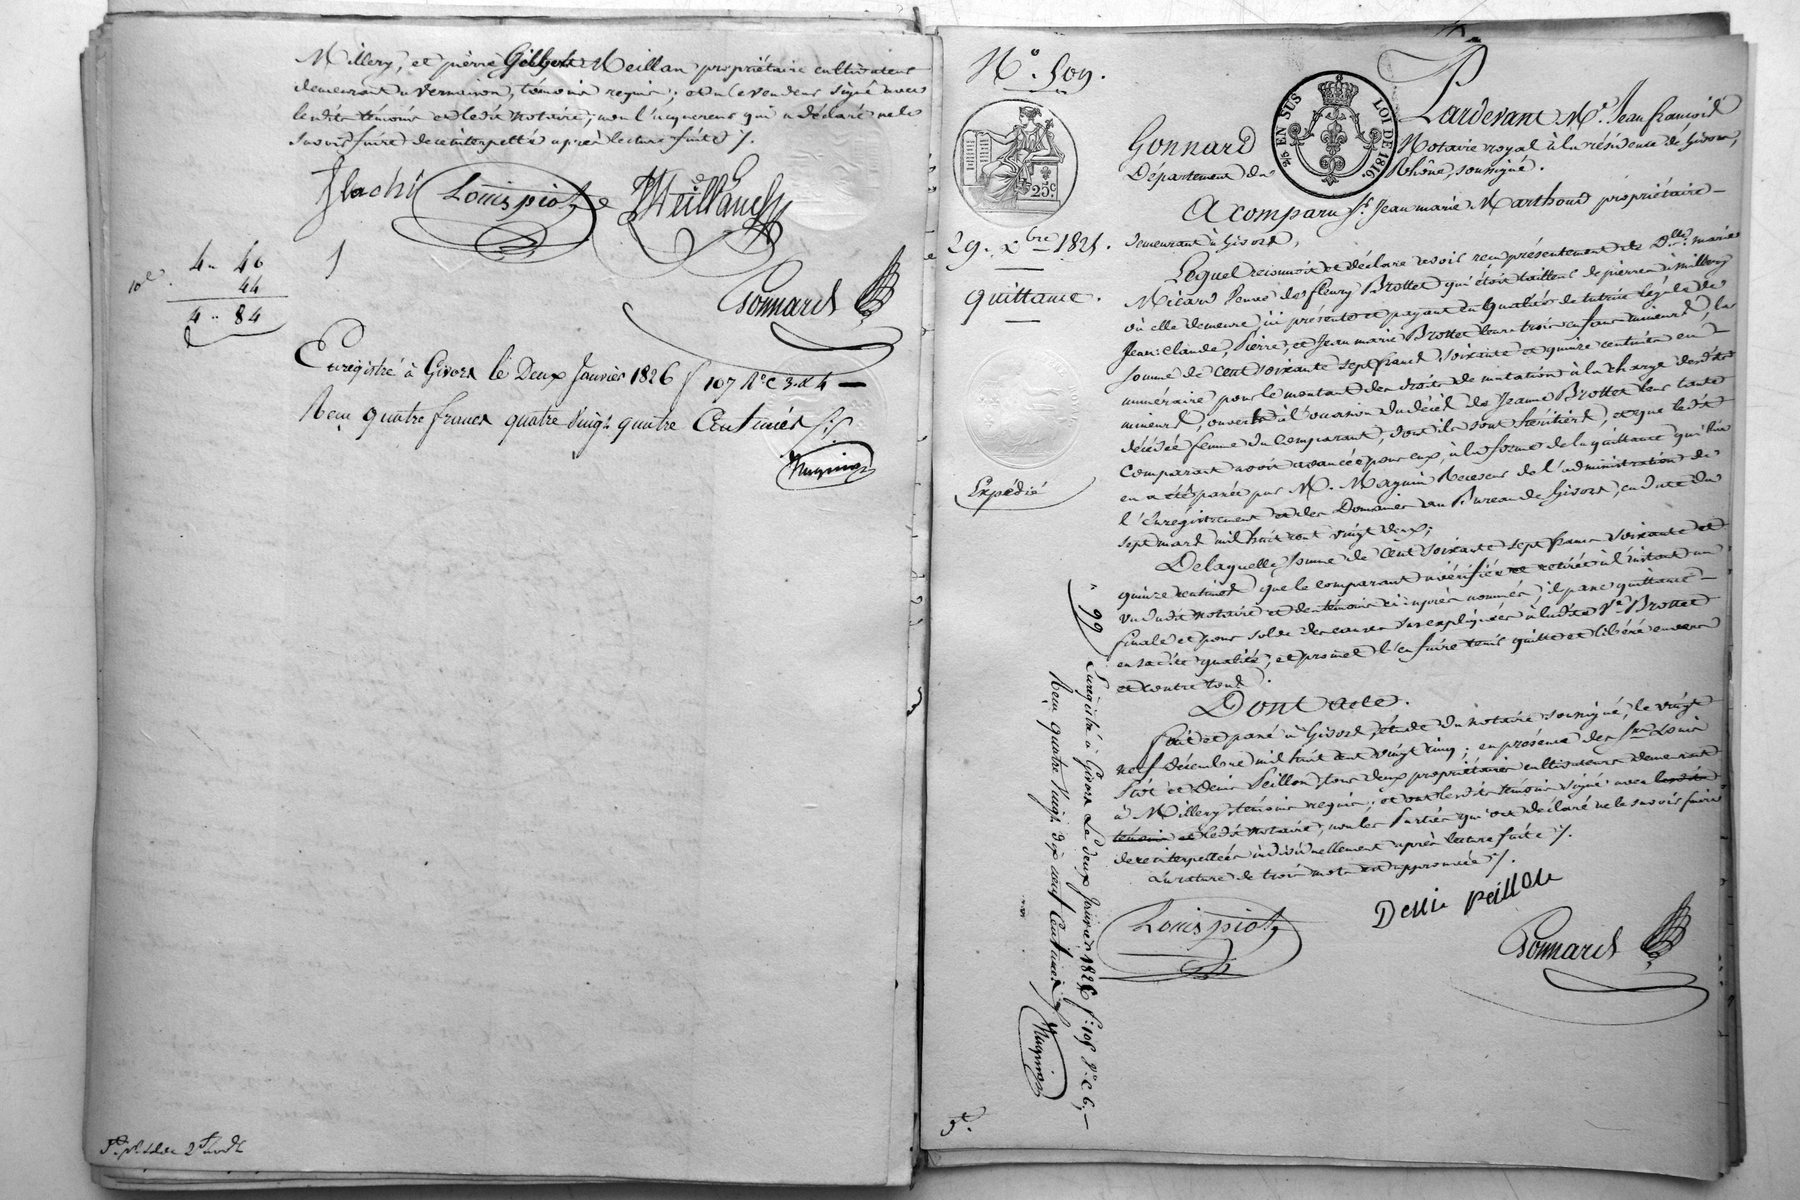 Millery, et pierre Gilbert Meillan propriétaire cultivateur
demeurant a Vernaison, témoins requis; et a le vendeur signé avec
lesdits témoins et ledit notaire; non l'acquereur qui a déclaré ne le
savoir faire de ce interpellé après lecture faite ./.
Flachi Louis piot Meillan
4.. 40
10e. 44
4.. 84
Gonnard
Enregistré à Givors le Deux Janvier 1826 f 107 Rº C 3. & 4 —
Reçu quatre francs quatre Vingt quatre Centimes
Maguin
Nº. 509.
EN SUS LOI DE 1816
25c.
29. Xbre 1825.
Quittance.
Expédié
Pardevant Me. Jean françois
Gonnard Notaire royal à la résidence de Givors,
Département du Rhône, soussigné.
A comparu Sr. Jean marie Marthoud propriétaire —
demeurant à Givors,
Lequel reconnoit et déclare avoir reçu présentement de Dlle. marie
Micard Veuve de fleury Brottet qui étoit tailleur de pierres à millery
où elle demeure, ici présente et payant en qualité de tutrice légale de
Jean-Claude, Pierre, et Jean marie Brottet leurs trois enfans mineurs, la
somme de Cent soixante sept francs soixante et quinze centimes en
numéraire pour le montant des droits de mutation à la charge desdits
mineurs, ouverts à l'occasion du décès de Jeanne Brottet leur tante
décédée femme du Comparant, dont ils sont héritiers, et que ledit
Comparant avoit avancée pour eux, à la forme de la quittance qui lui
en a été passée par M. Maguin Receveur de l'administration de
l'Enregistrement et des Domaines au Bureau de Givors, en date du
sept mars mil huit cent vingt deux;
De laquelle somme de Cent soixante sept francs soixante et
quinze centimes que le comparant a vérifiée et retirée à l'instant au
vu dudit notaire et des témoins ci après nommés, il passe quittance —
finale et pour solde des causes sus expliquées à ladite Ve. Brottet
en sa dite qualité; et promet l'en faire tenir quitte et libérée envers
et contre tous.
Dont acte.
fait et passé à Givors, étude du notaire soussigné, le vingt
neuf décembre mil huit cent vingt cinq; en présence des Srs. Louis
Piot et Denis Peillon tous deux propriétaires cultivateurs demeurant
à Millery témoins requis; et ont lesdits témoins signé avec lesdits
témoins et ledit notaire; non les Parties qui ont déclaré ne le savoir faire
de ce interpellées individuellement après lecture faite ./.
La rature de trois mots est approuvée ./.
Louis piot Denis peillon
Gonnard
" 99
Enregistré à Givors Le deux Janvier 1826 f: 108 Vº C 6; —
Reçu quatre Vingt dix neuf Centimes
Maguin